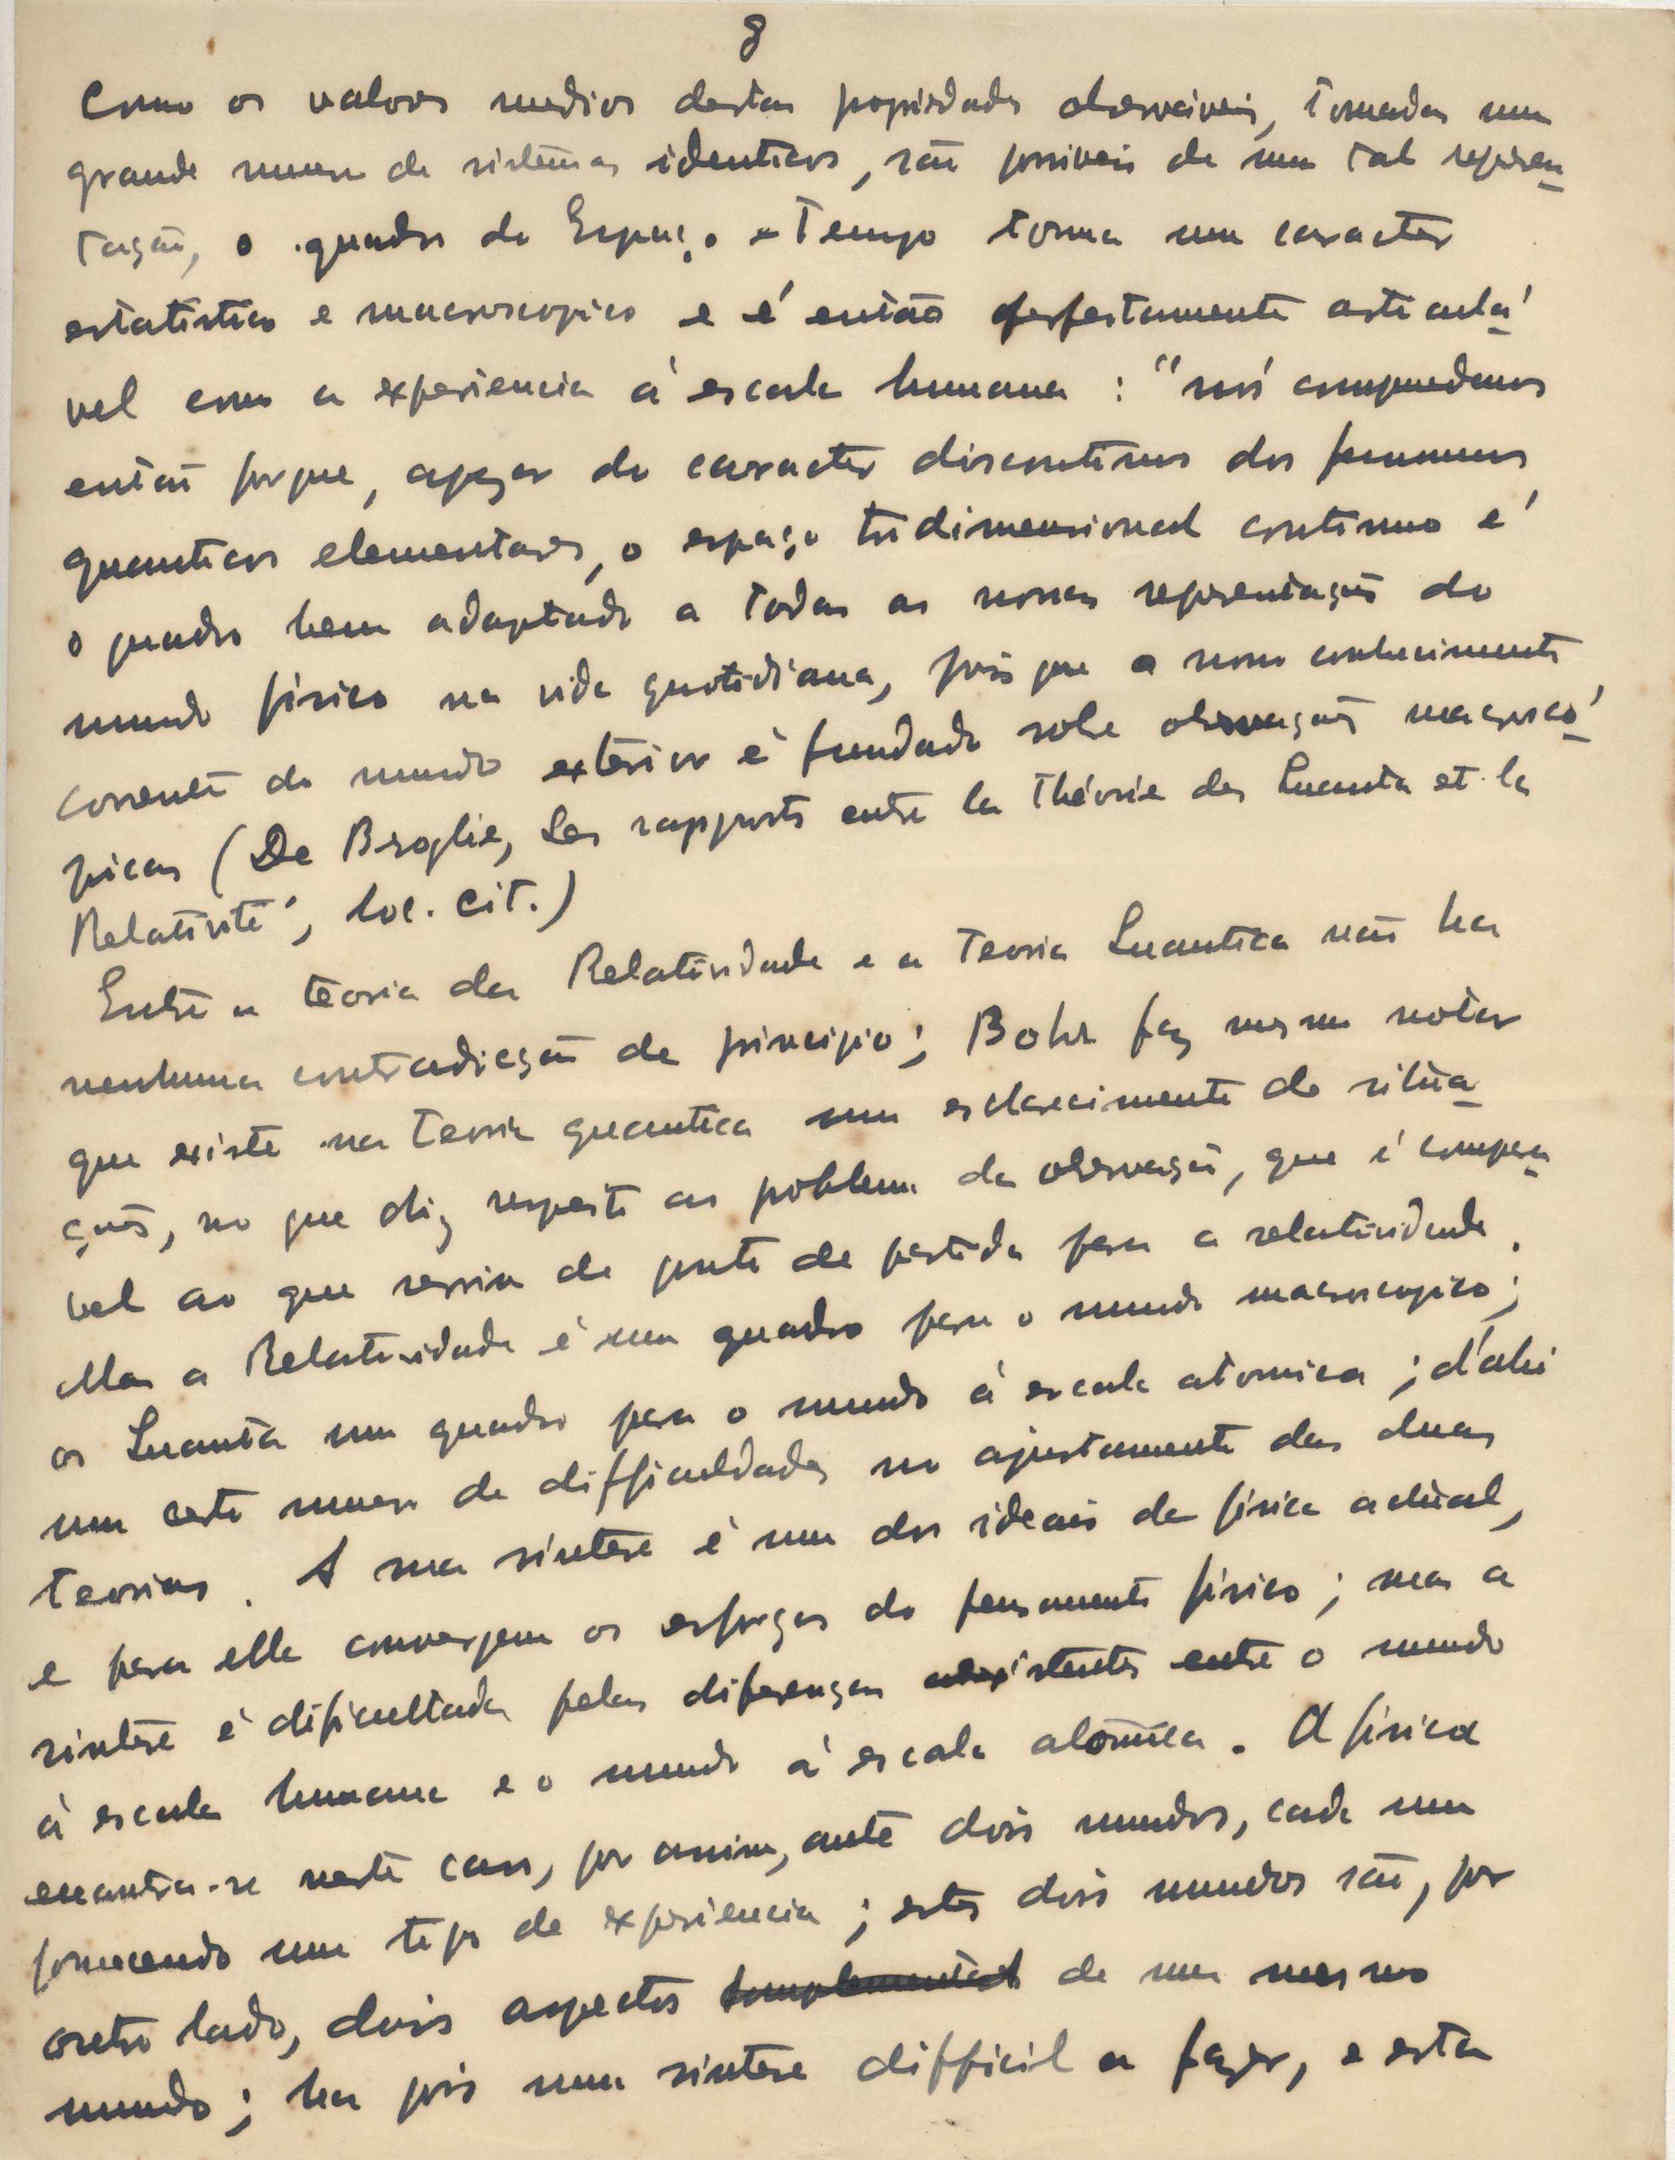 8
Como os valores medios destas propriedades observáveis, tomadas num
grande numero de sistemas identicos, são possiveis de uma tal represen-
tação, o quadro do Espaço-Tempo toma um caracter
estatistico e macroscopico e é então perfeitamente articulá-
vel com a experiencia á escala humana : "nós comprendemos
então porque, apezar do caracter discontinuo dos fenomenos
quanticos elementares, o espaço tridimensional continuo é
o quadro bem adaptado a todas as nossas representações do
mundo físico na vida quotidiana, pois que o nosso conhecimento
corrente do mundo exterior é fundado sobre observações macroscó-
picas (De Broglie, Les rapports entre la Théorie des Quanta et la
Relativité, loc. cit.)
Entre a teoria da Relatividade e a Teoria Quantica não ha
nenhuma contradicção de principio; Bohr faz mesmo notar
que existe na teoria quantica um esclarecimento de situa-
ções, no que diz respeito ao problema da observação, que é compara-
vel ao que serviu de ponto de partida para a relatividade.
Mas a Relatividade é um quadro para o mundo macroscopico;
os Quanta um quadro para o mundo á escala atomica ; d'ahi
um certo numero de difficuldades no ajustamento das duas
teorias. A sua sintese é um dos ideais da física actual,
e para ella convergem os esforços do pensamento físico ; mas a
sintese é dificultada pelas diferenças existentes entre o mundo
á escala humana e o mundo á escala atómica. A física
encontra-se neste caso, por assim, ante dois mundos, cada um
fornecendo um tipo de experiencia ; estes dois mundos são, por
outro lado, dois aspectos de um mesmo
mundo ; ha pois uma sintese difficil a fazer, e esta